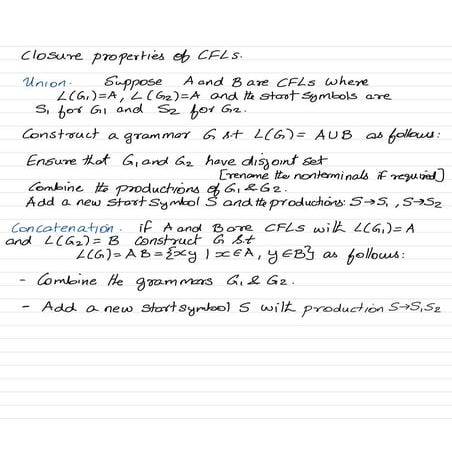 Closure properties of CFLs.
Union. Suppose A and B are CFLs where
L(G₁)=A, L(G₂)=A and the start symbols are
S₁ for G₁ and S₂ for G₂.
Construct a grammar G s.t L(G)= A∪B as follows:
Ensure that G₁ and G₂ have disjoint set
[rename the nonterminals if required]
Combine the productions of G₁ & G₂.
Add a new start symbol S and the productions: S→S₁, S→S₂
Concatenation. if A and B are CFLs with L(G₁)=A
and L(G₂)=B construct G s.t
L(G)=AB={xy | x∈A, y∈B} as follows:
- Combine the grammars G₁ & G₂.
- Add a new start symbol S with production S→S₁S₂